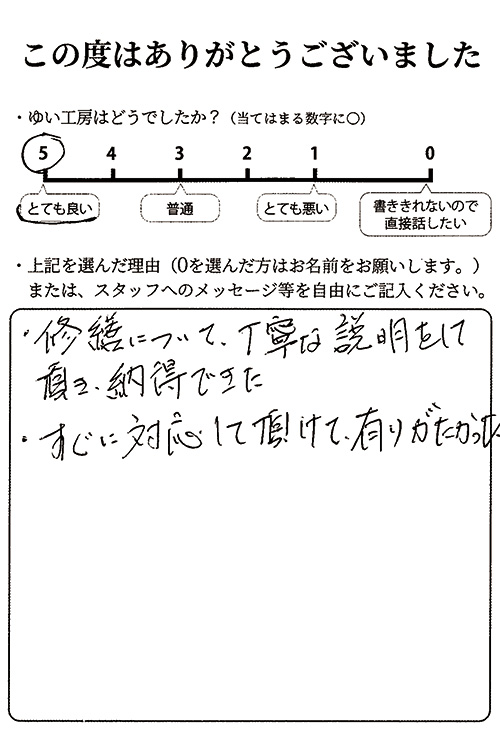 この度はありがとうございました
・ゆい工房はどうでしたか？（当てはまる数字に〇）
5 4 3 2 1 0
とても良い 普通 とても悪い 書ききれないので
直接話したい
・上記を選んだ理由（0を選んだ方はお名前をお願いします。）
または、スタッフへのメッセージ等を自由にご記入ください。
・修繕について、丁寧な説明をして
頂き、納得できた
・すぐに対応して頂けて、有りがたかった。